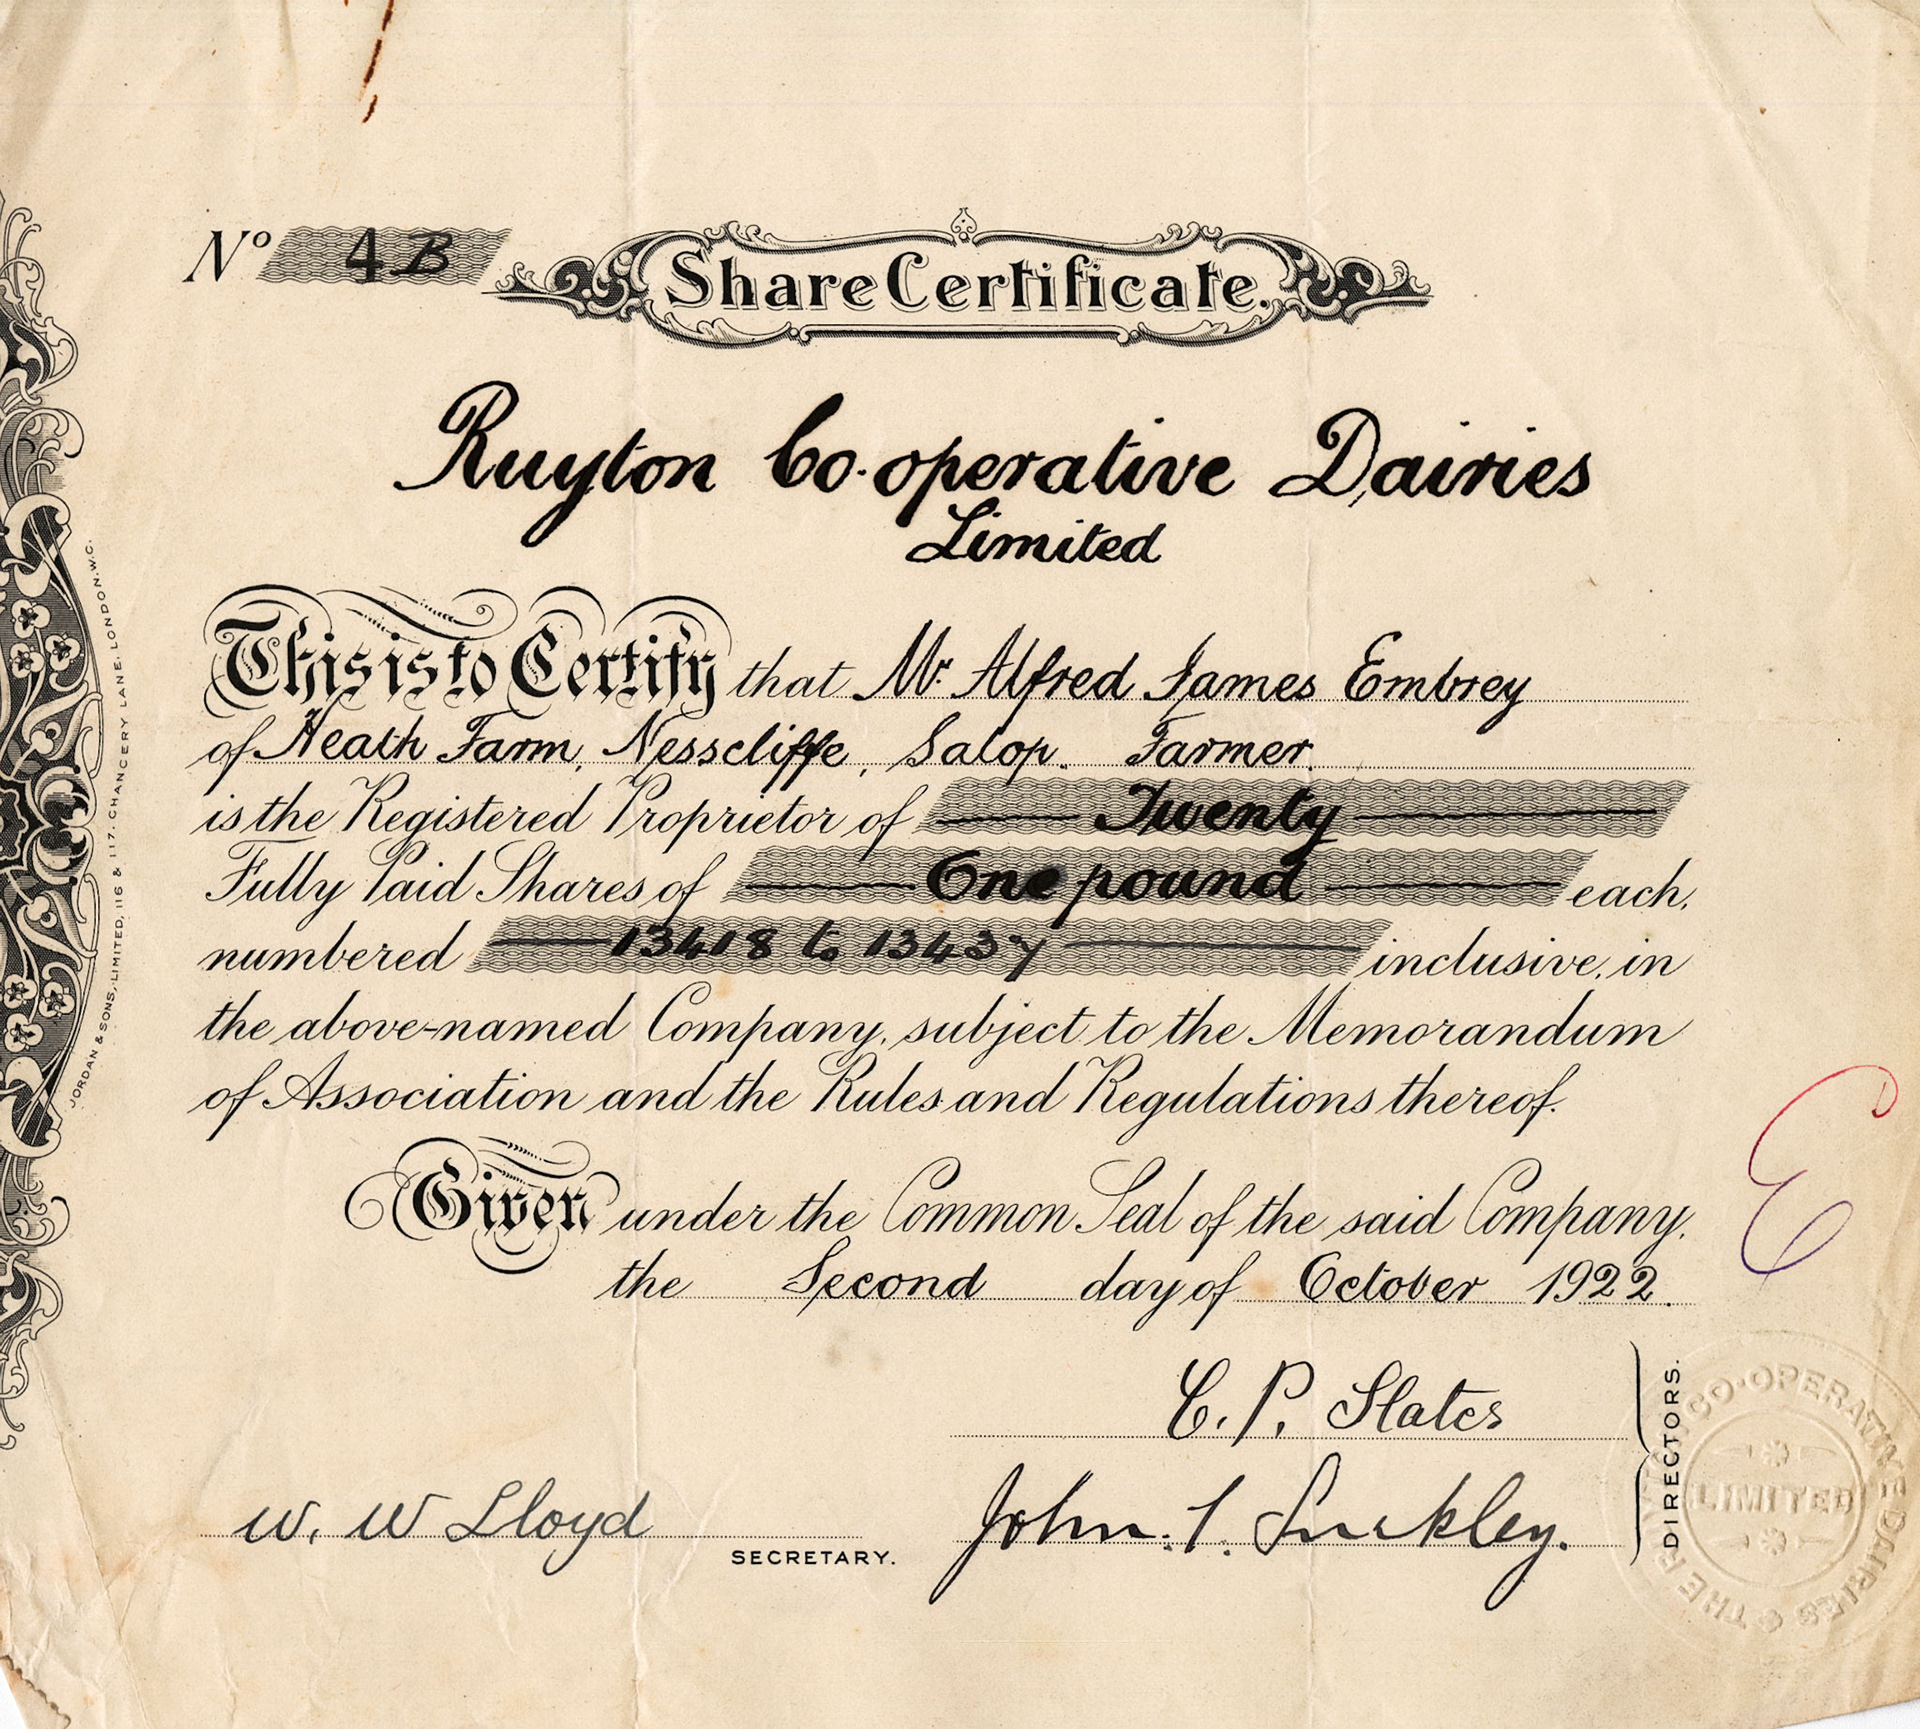 Nº 4B
Share Certificate.
Ruyton Co-operative Dairies
Limited
This is to Certify that Mr. Alfred James Embrey
of Heath Farm, Nesscliffe, Salop. Farmer.
is the Registered Proprietor of Twenty
Fully Paid Shares of One pound each,
numbered 13418 to 13437 inclusive, in
the above-named Company, subject to the Memorandum
of Association and the Rules and Regulations thereof.
Given under the Common Seal of the said Company,
the Second day of October 1922.
C. P. Slates
John. Suckley.
DIRECTORS.
W. W Lloyd
SECRETARY.
JORDAN & SONS, LIMITED, 116 & 117, CHANCERY LANE, LONDON, W.C.
E
THE CO-OPERATIVE DAIRIES
LIMITED